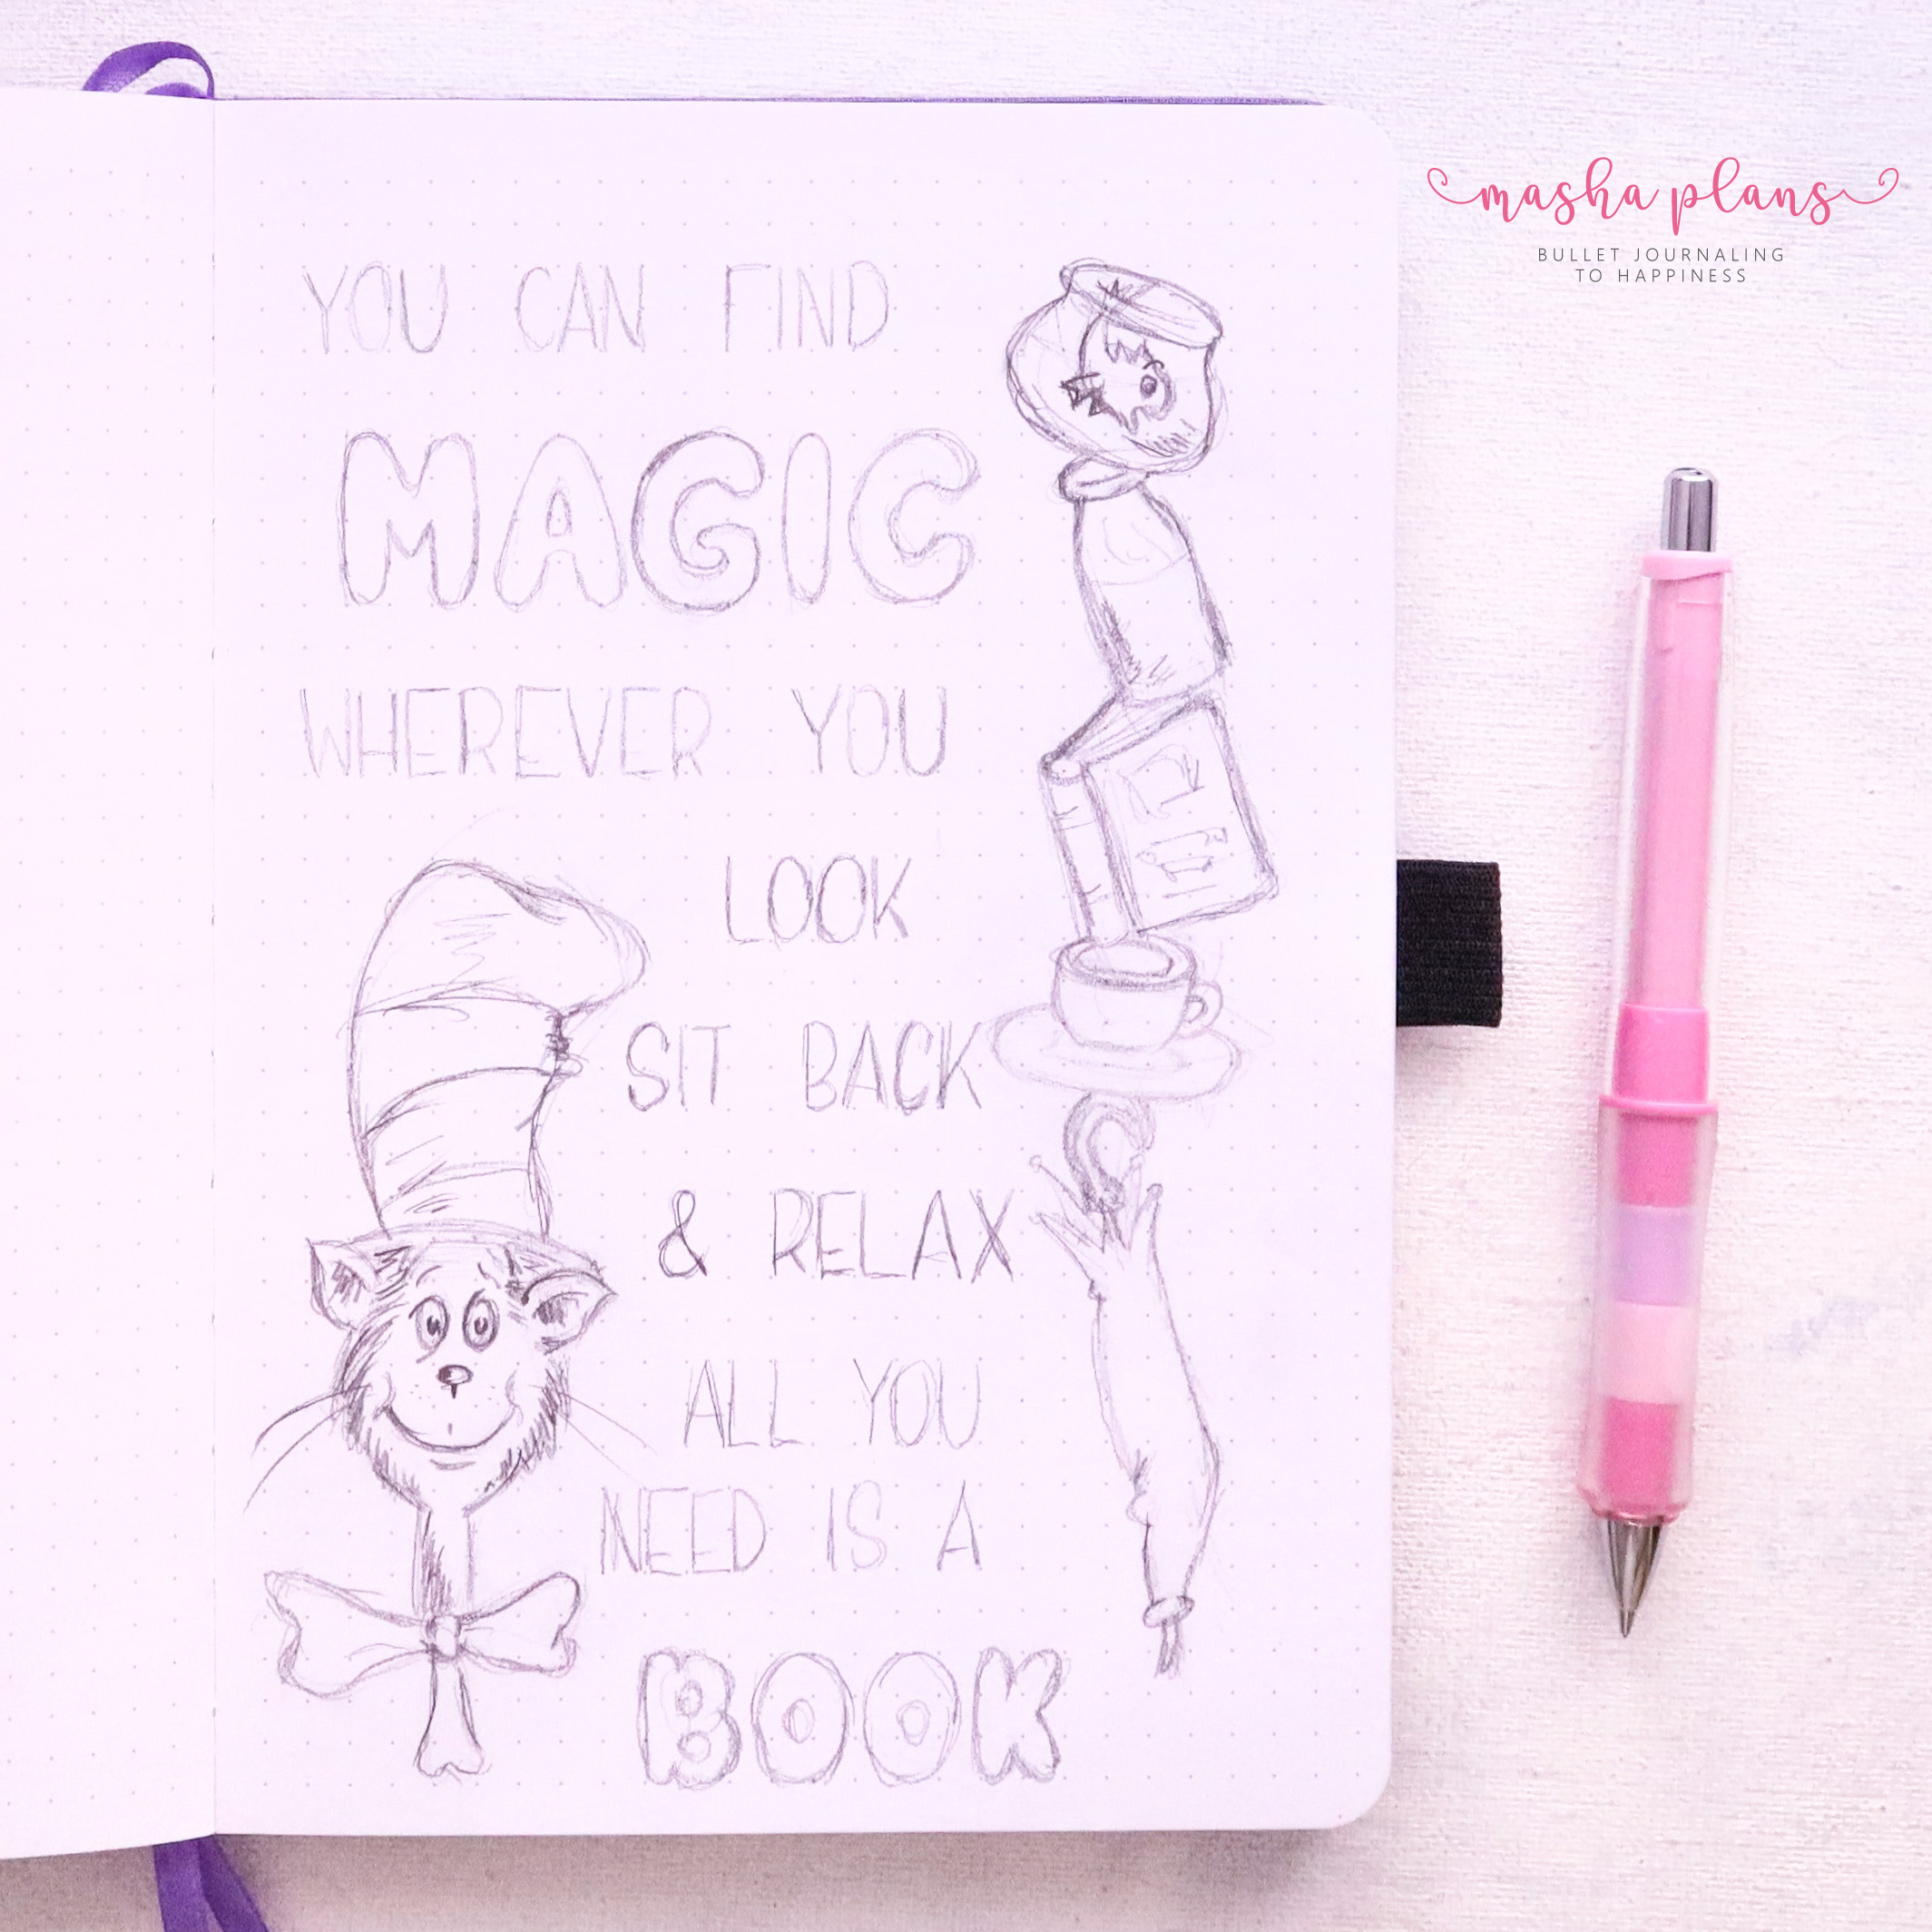 YOU CAN FIND
MAGIC
WHEREVER YOU
LOOK
SIT BACK
& RELAX
ALL YOU
NEED IS A
BOOK
masha plans
BULLET JOURNALING
TO HAPPINESS